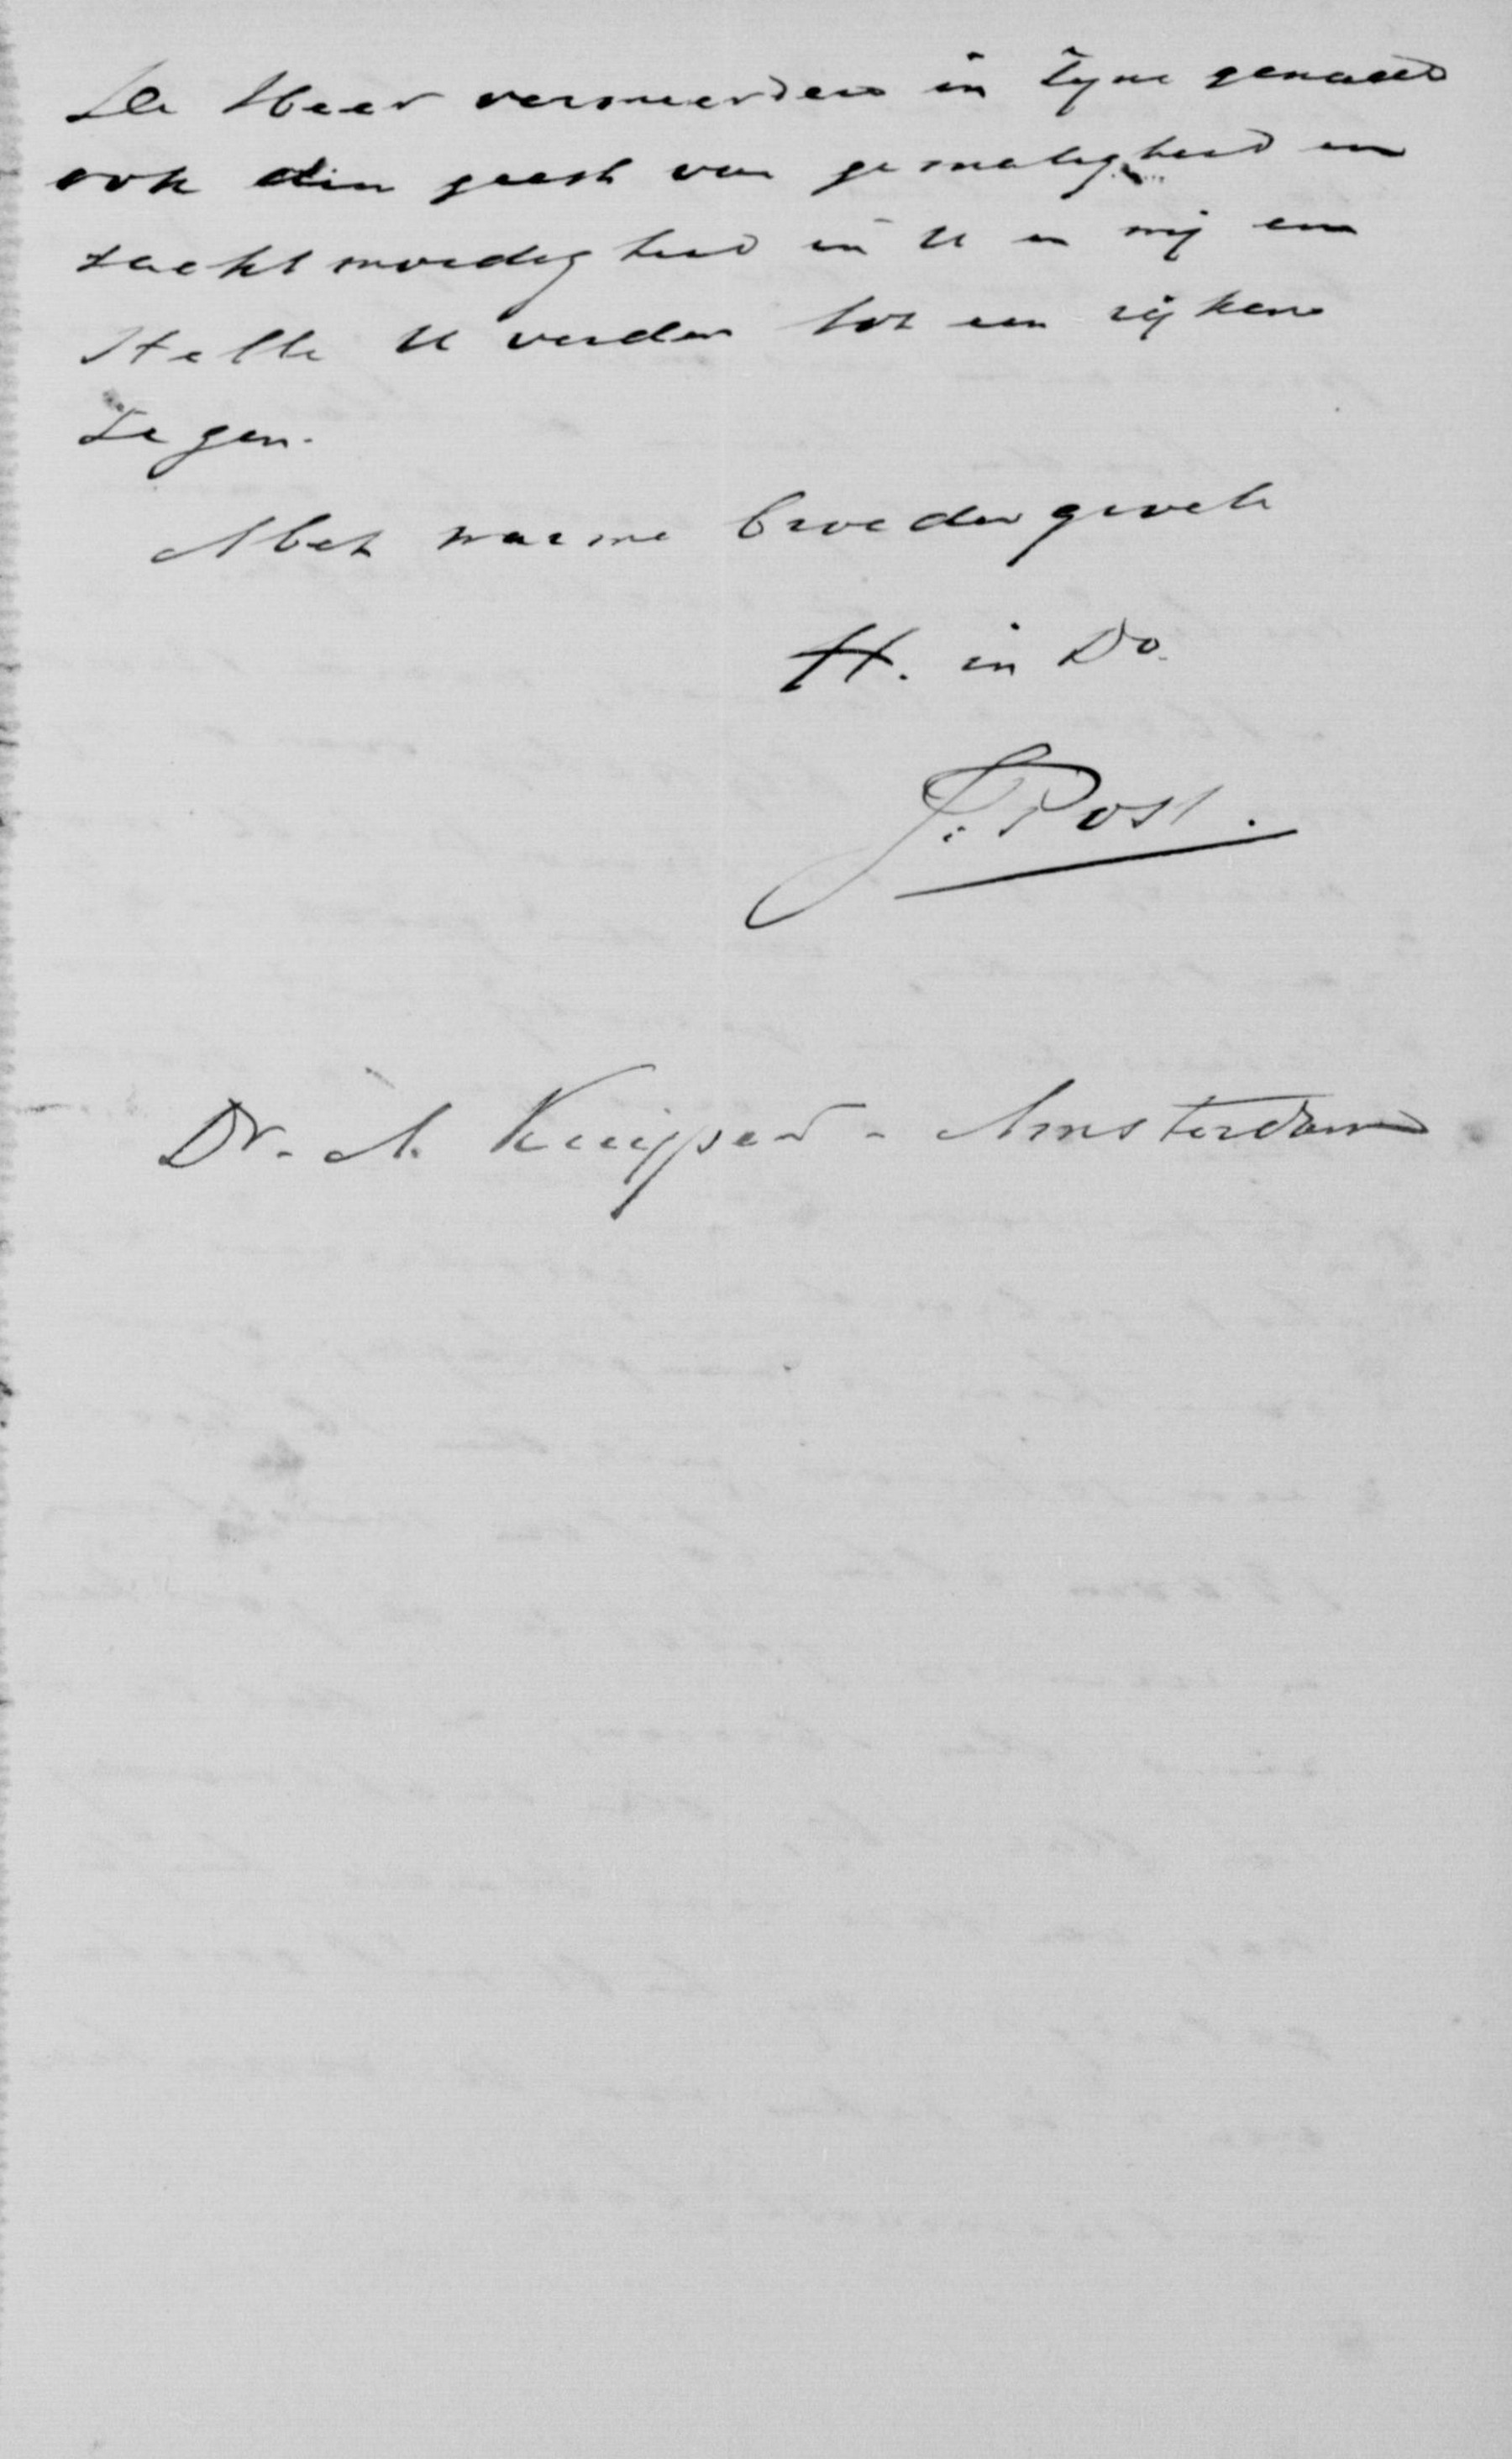 De Heer vermeerdere in Zyne genade
ook dien geest van gematigheid en
zachtmoedigheid in U en mij en
stelle U verder tot een rijken
Zegen.
Met warme broedergroete
H. in Do.
J. Post.
Dr. A. Kuijper - Amsterdam